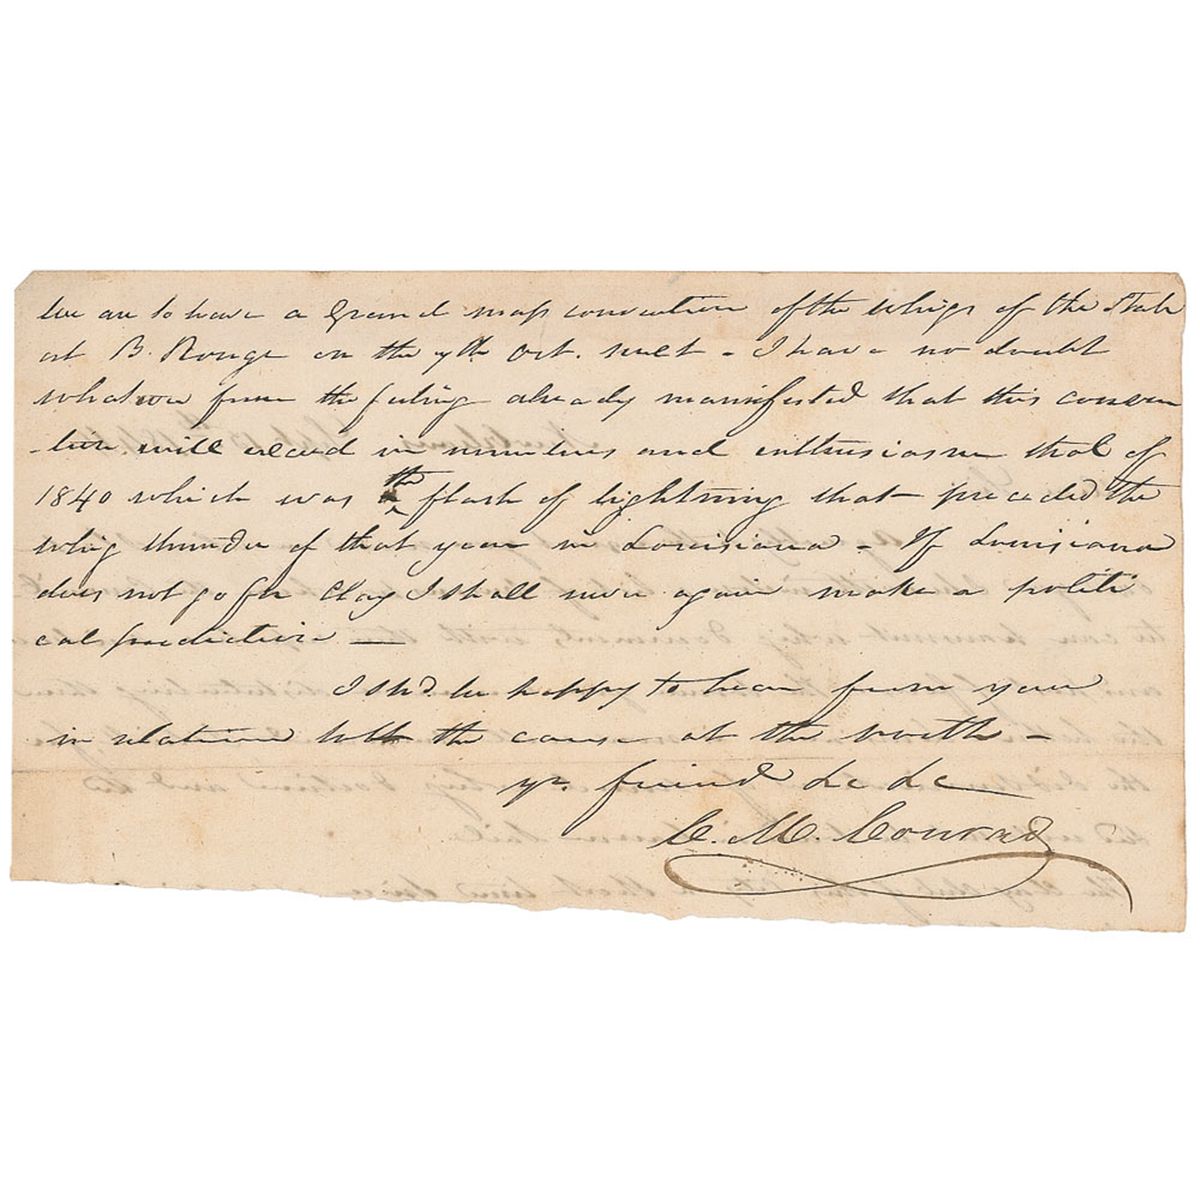 We are to have a Grand mass convention of the Whigs of the State
at B. Rouge on the 7th Oct. next - I have no doubt
whatever from the feeling already manifested that this conven
-tion will exceed in numbers and enthusiasm that of
1840 which was the flash of lightning that preceded the
whig thunder of that year in Louisiana - If Louisiana
does not go for Clay I shall never again make a politi
cal prediction —
I shd. be happy to hear from you
in relation to the cause at the north -
yr. friend &c &c
C. M. Conrad